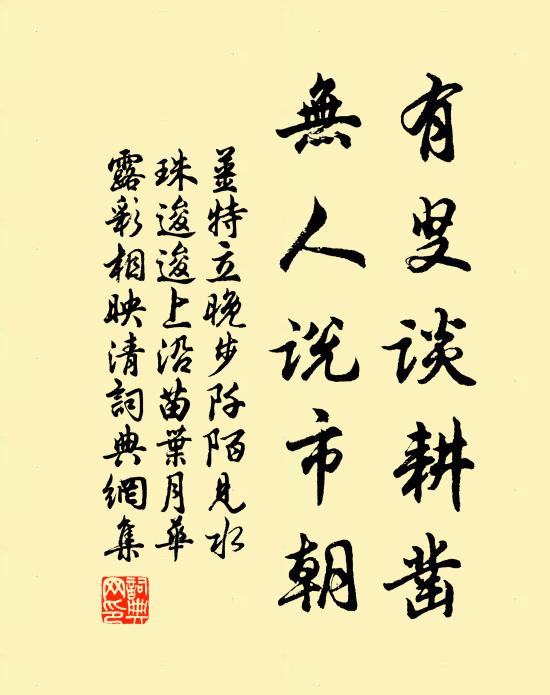 有叟谈耕凿
無人说市朝
姜特立晚步阡陌見水
珠逡逡上沿苗葉月華
露彩相映清詞典網集
詞典网印